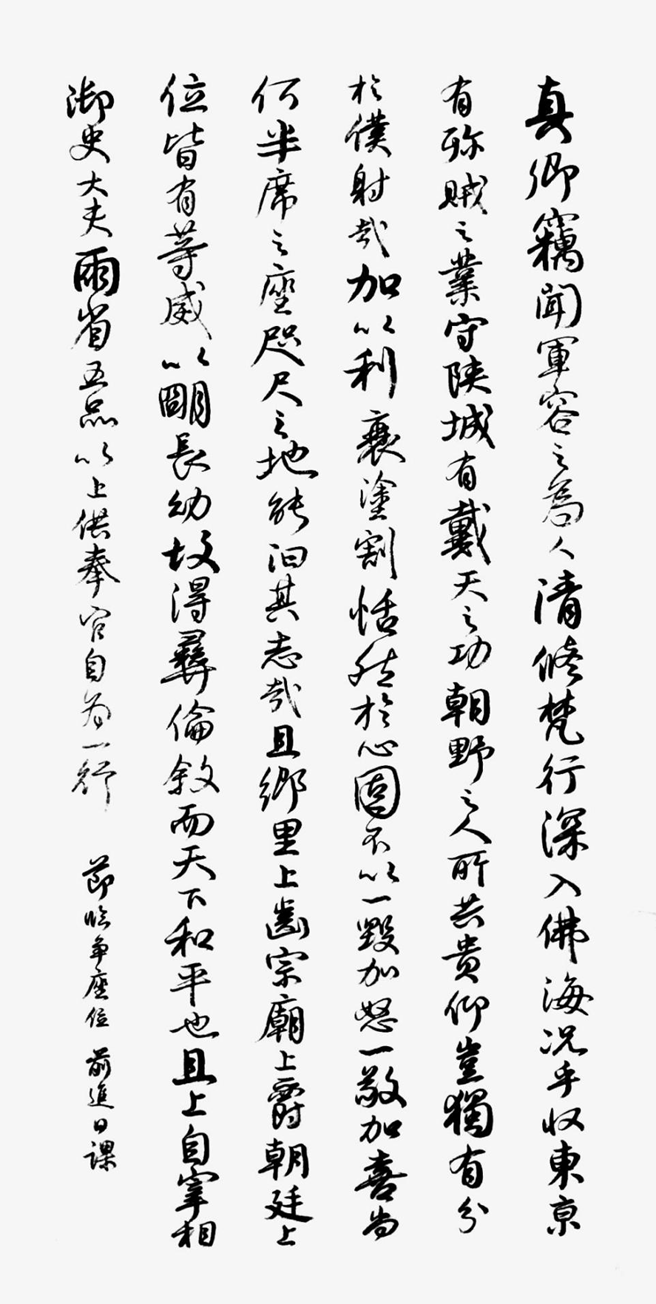 真卿竊聞軍容之為人清修梵行深入佛海况乎收東京
有殄賊之業守陝城有戴天之功朝野之人所共貴仰豈獨有分
於僕射哉加以利衰塗割恬然於心固不以一毀加怒一敬加喜尚
何半席之座咫尺之地能汩其志哉且鄉里上齒宗廟上爵朝廷上
位皆有等威以明長幼故得彝倫敘而天下和平也且上自宰相
御史大夫兩省五品以上供奉官自為一行
節臨爭座位 前進日課